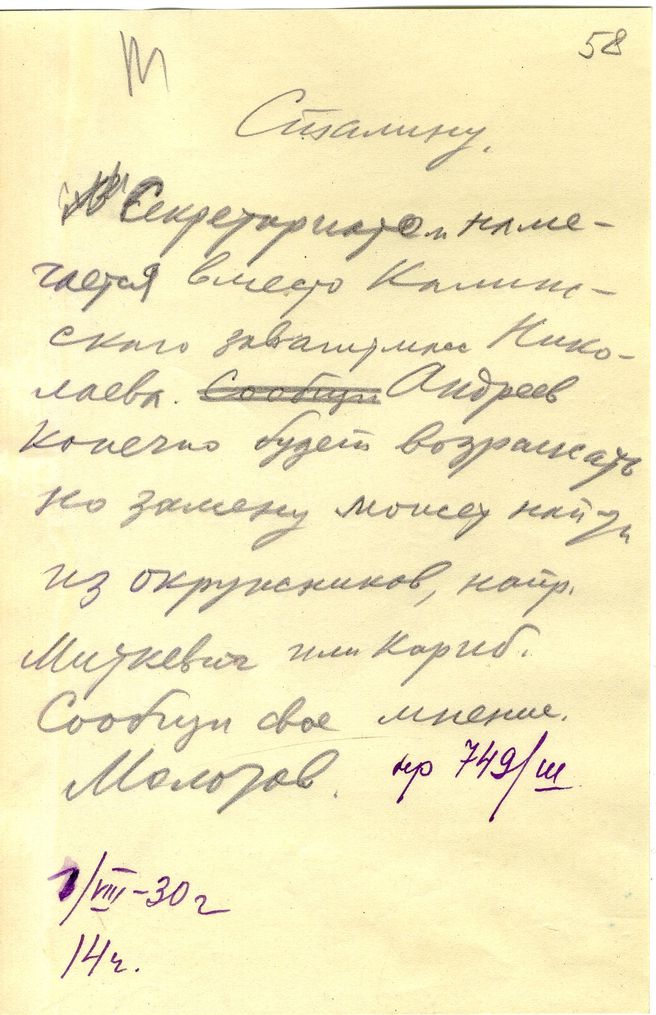 58
Сталину.
Секретариатом наме-
чается вместо Камин-
ского завагитмасс Нико-
лаева. Сообщи Андреев
Конечно будет возражать
но замену может найти
из окружников, напр.
Миткевич или Кариб.
Сообщи свое мнение.
Молотов. нр 749/ш
1/VIII-30 г
14 ч.